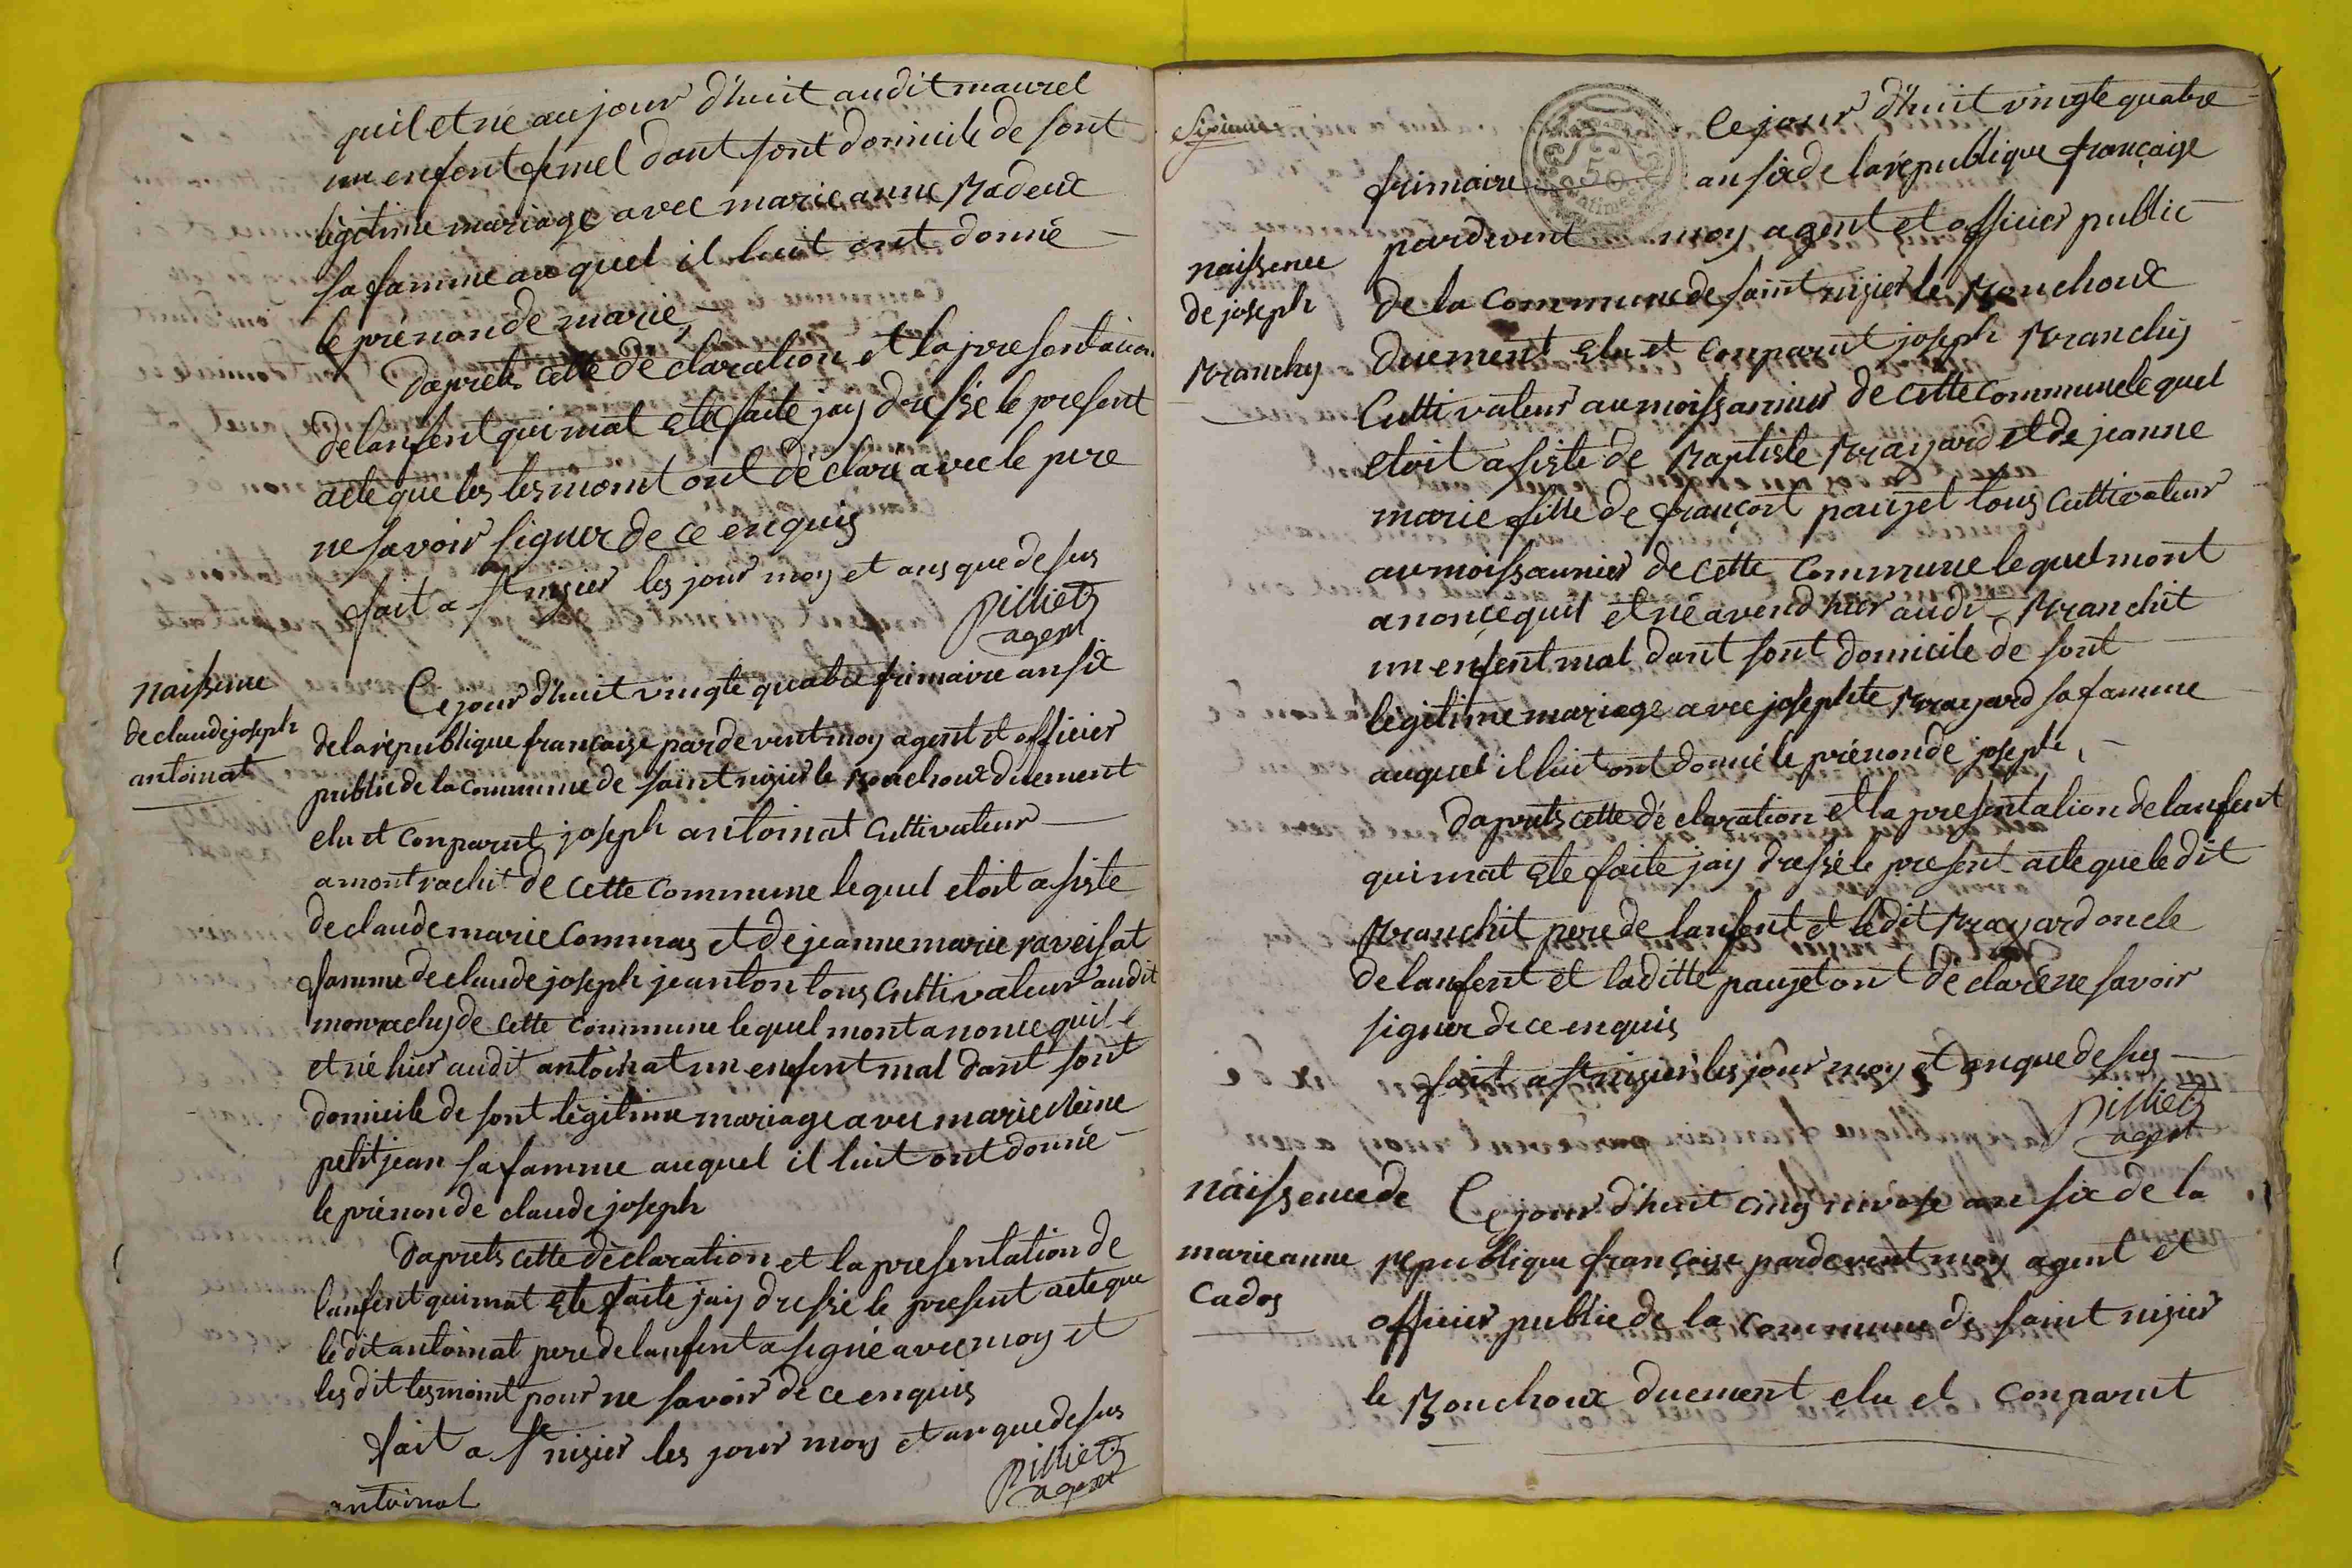 quil et né aujour d'huit audit maurel
un enfent femel dant sont domicile de sont
légitime mariage avec marie anne Badeux
sa famme auquel il luit ont donné
le prenon de marie
Daprets cette declaration et la presentation
de lanfent qui mat ete faite jay dressé le present
acte que les tesmoint ont déclaré avec le pere
ne savoir signer de ce enquis
fait a st nisier les jour moy et ans que desus
pilliet
agent
naissence
de claude joseph
antoinat
Ce jour d'huit vingte quatre frimaire an six
de la république française par devent moy agent et officier
public de la commune de saint nisier le Bouchoux duement
elu et conparut joseph antoinat cultivateur
a montrachit de cette commune lequel etoit asiste
de claude marie Commas et de jeanne marie raveisat
famme de claude joseph jeanton tous cultivateur audit
monrachy de cette commune lequel mont anonce quil
et né hier audit antoinat un enfent mal dant sont
domicile de sont légitime mariage avec marie Reine
petitjean sa famme auquel il luit ont donné
le prénon de claude joseph
Daprets cette déclaration et la presentation de
lanfent qui mat ete faite jay dressé le present acte que
le dit antoinat pere de lanfent a signé avec moy et
les dit tesmoint pour ne savoir de ce enquis
fait a st nisier les jour moy et an que desus
antoinat
pilliet
agent
50
Ce jour d'huit vingte quatre
frimaire an six de la république française
pardevent moy agent et officier public
naissence
de joseph
Branchy
de la commune de saint nisier le Bouchoux
duement elu et conparut joseph Branchy
Cultivateur au moissannier de cette commune le quel
etoit asiste de Baptiste Brayard et de jeanne
marie fille de françoit paujet tous cultivateur
au moissaunier de cette commune le quel mont
anonce quil et né avend hier audi Branchit
un enfent mal dant sont domicile de sont
légitime mariage avec josephte Brayard sa famme
auquel il luit ont donné le prénon de joseph
Daprets cette déclaration et la presentation de lanfent
qui mat ete faite jay dressé le present acte que le dit
Branchit pere de lanfent et ledit Brayard oncle
de lanfent et la ditte paujet ont déclaré ne savoir
signer de ce enquis
fait a st nisier les jour moy et an que desus
pilliet
agent
naissence de
marie anne
Cados
Ce jour d'huit cinq nivose an six de la
republique française pardevent moy agent et
officier public de la commune de saint nisier
le Bouchoux duement elu et conparut